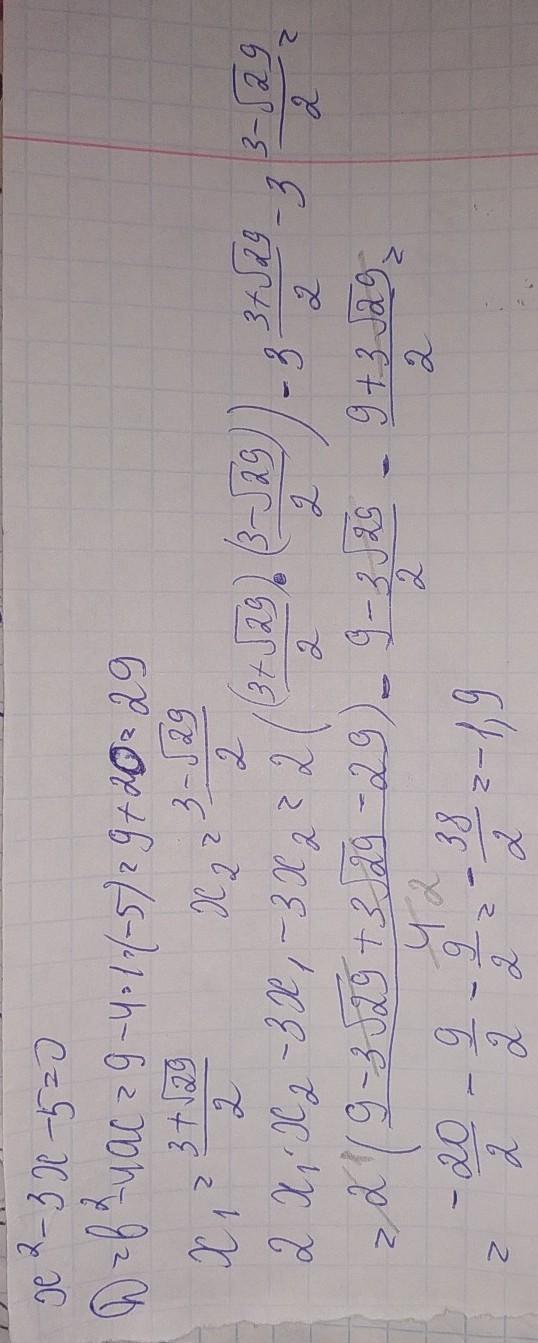 x² - 3x - 5 = 0
D = b² - 4ac = 9 - 4·1·(-5) = 9 + 20 = 29
x₁ = (3+√29)/2 x₂ = (3-√29)/2
2x₁·x₂ - 3x₁ - 3x₂ = 2((3+√29)/2)·(3-√29)/2)) - 3 (3+√29)/2 - 3 (3-√29)/2 =
= 2((9 - 3√29 + 3√29 - 29)/4 2) - (9 - 3√29)/2 - (9 + 3√29)/2 =
= -20/2 - 9/2 - 9/2 = -38/2 = -1,9